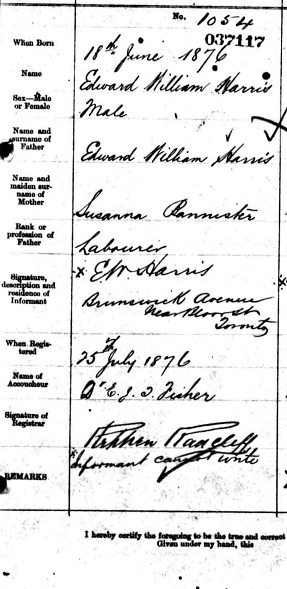 No. 1054
037117
When Born
18th June 1876
Name
Edward William Harris
Sex—Male
or Female
Male
Name and
surname of
Father
Edward William Harris
Name and
maiden sur-
name of
Mother
Susanna Bannister
Rank or
profession of
Father
Labourer
Signature,
description and
residence of
Informant
x EW Harris
Brunswick Avenue
Near Bloor St
Toronto
When Regis-
tered
25th July 1876
Name of
Accoucheur
Dr E. J. T. Fisher
Signature of
Registrar
Stephen Radcliff
x Informant cannot write
REMARKS
I hereby certify the foregoing to be the true and correct
Given under my hand, this